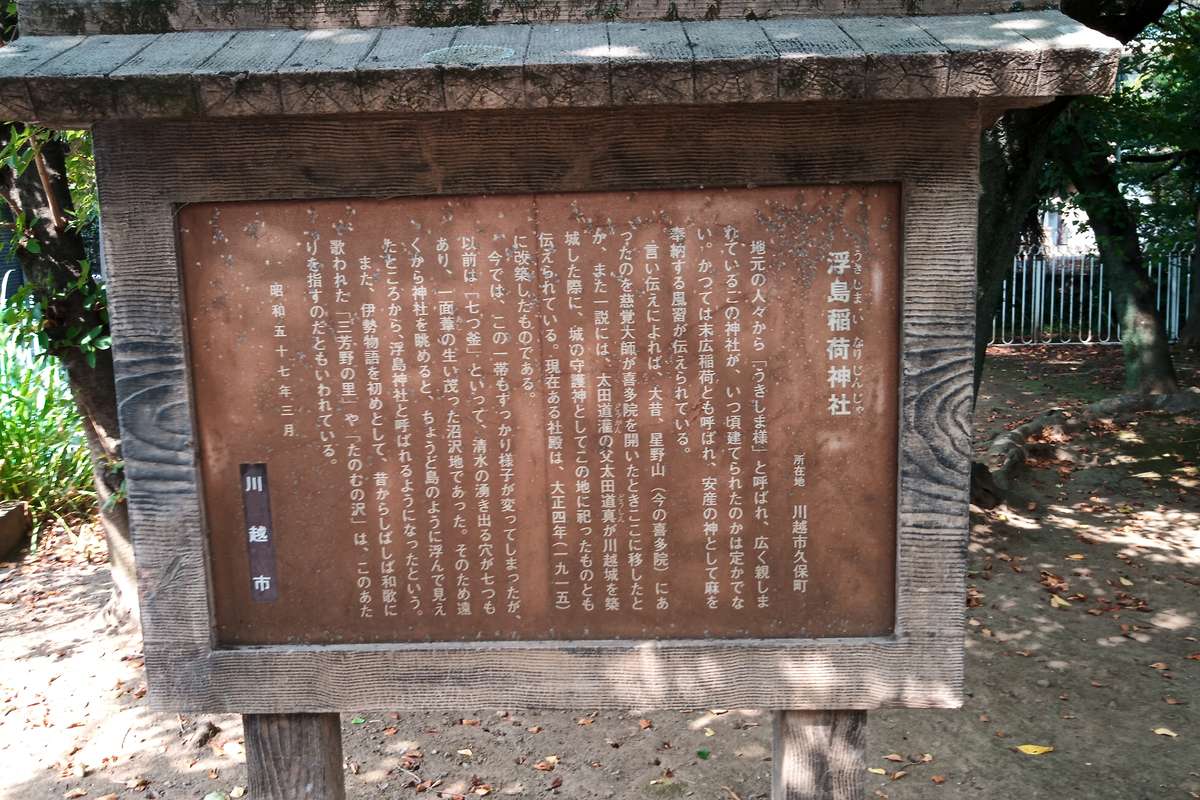 浮島稲荷神社
うきしまいなりじんじゃ
所在地 川越市久保町
地元の人々から「うきしま様」と呼ばれ、広く親しま
れているこの神社が、いつ頃建てられたのかは定かでな
い。かつては末広稲荷とも呼ばれ、安産の神として麻を
奉納する風習が伝えられている。
言い伝えによれば、大昔、星野山(今の喜多院)にあ
ったのを慈覚大師が喜多院を開いたときここに移したと
か、また一説には、太田道灌の父太田道真が川越城を築
どうかん
どうしん
城した際に、城の守護神としてこの地に祀ったものとも
伝えられている。現在ある社殿は、大正四年(一九一五)
に改築したものである。
今では、この一帯もすっかり様子が変ってしまったが、
以前は「七つ釜」といって、清水の湧き出る穴が七つも
あり、一面葦の生い茂った沼沢地であった。そのため遠
あし
くから神社を眺めると、ちょうど島のように浮んで見え
たところから、浮島神社と呼ばれるようになったという。
また、伊勢物語を初めとして、昔からしばしば和歌に
歌われた「三芳野の里」や「たのむの沢」は、このあた
りを指すのだともいわれている。
昭和五十七年三月
川越市